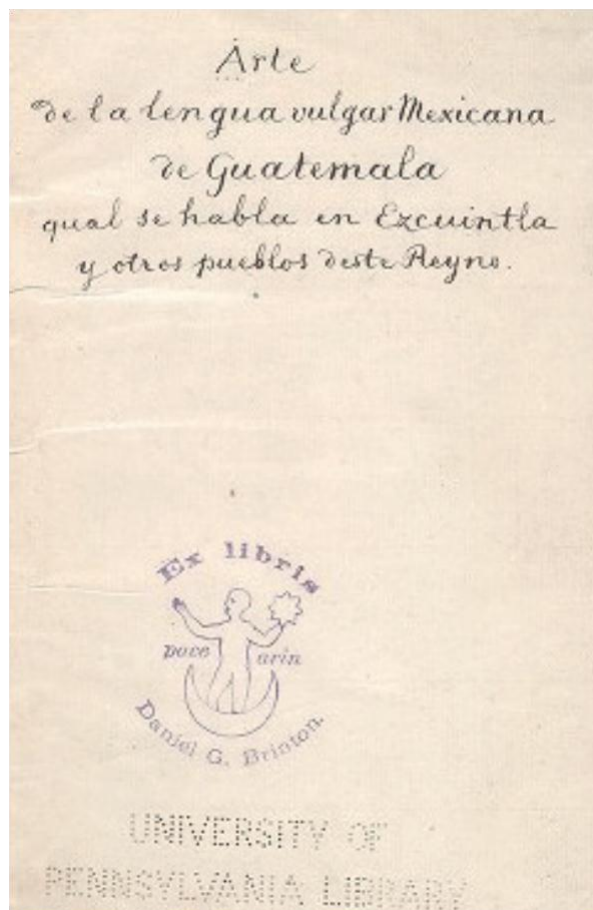 Arte
de la lengua vulgar Mexicana
de Guatemala
qual se habla en Ezcuintla
y otros pueblos deste Reyno.
Ex libris
pove arin
Daniel G. Brinton.
UNIVERSITY OF
PENNSYLVANIA LIBRARY